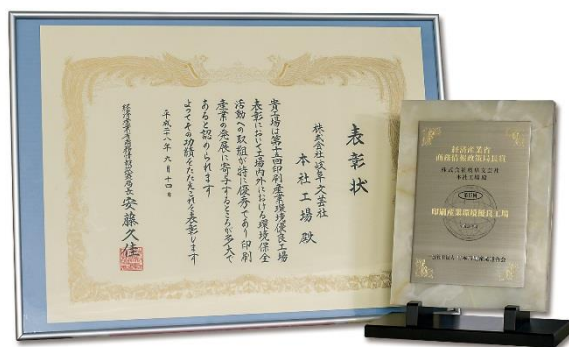 表彰状
株式会社岐阜文芸社
本社工場 殿
貴工場は第十五回印刷産業環境優良工場
表彰において工場内外における環境保全
活動への取組が特に優秀であり印刷
産業の発展に寄与するところが多大で
あると認められます
よってその功績をたたえこれを表彰します
平成二十八年 九月 十四日
経済産業省商務情報政策局長 安藤久佳
経済産業省
商務情報政策局長賞
株式会社岐阜文芸社
本社工場 殿
印刷産業環境優良工場